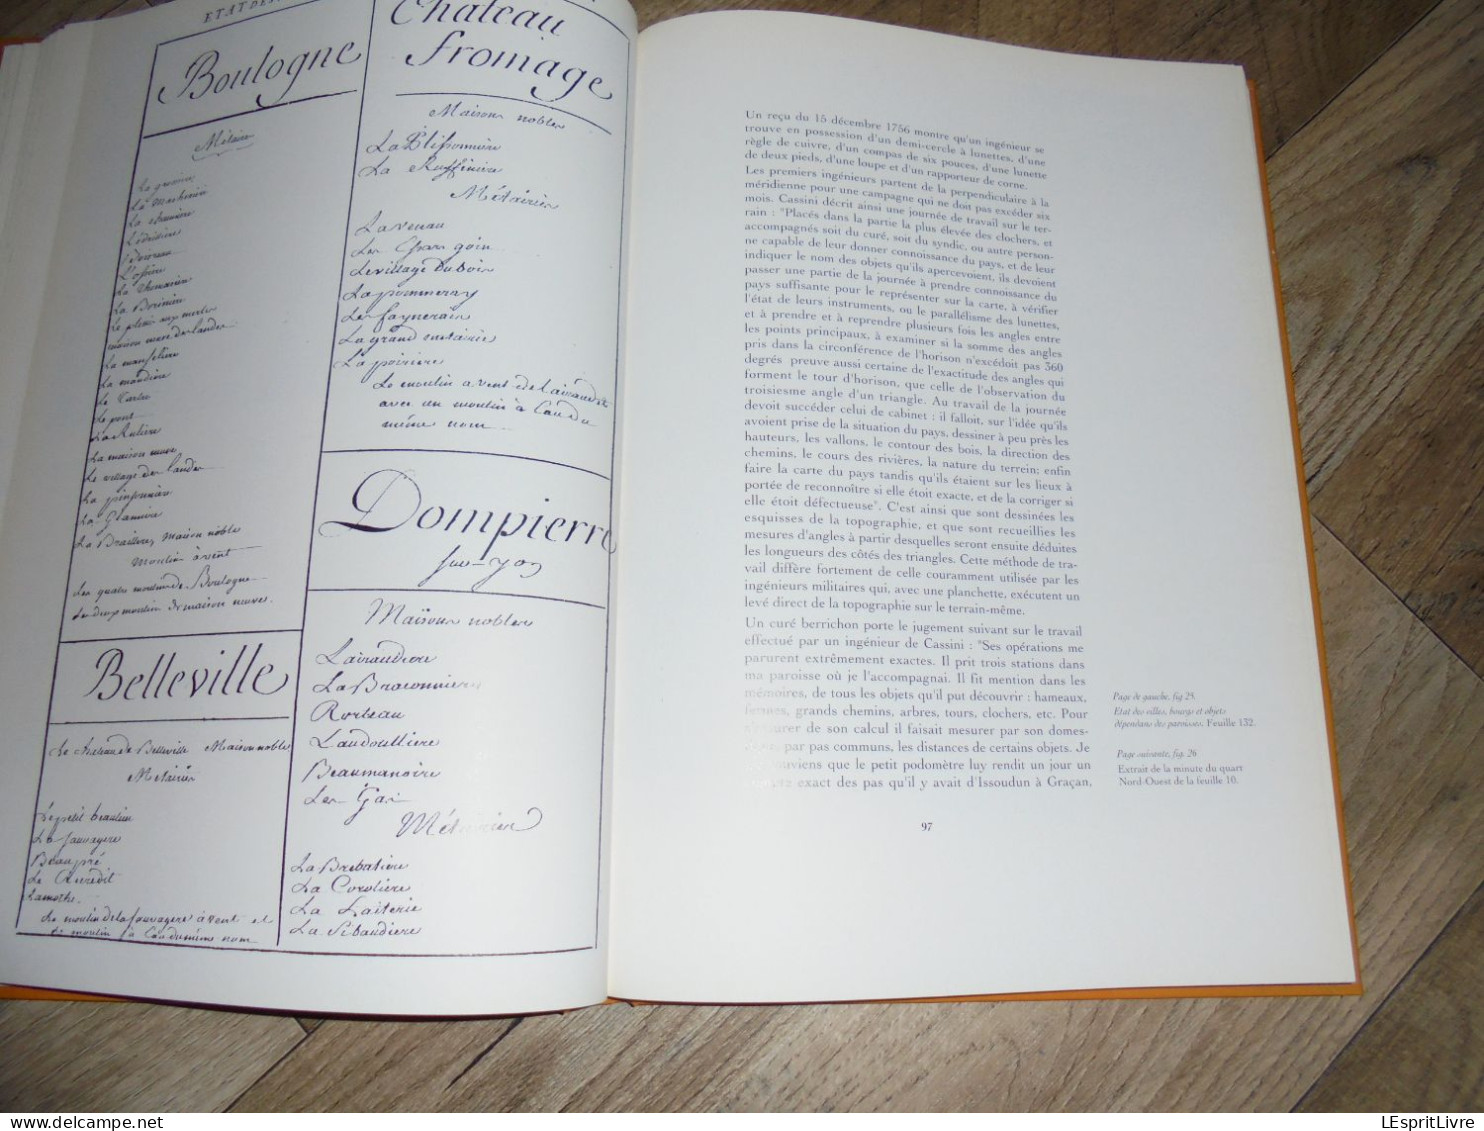 ETAT DES
Boulogne
Métairie
La Borinière
maison neuve des landes
Le pont
La Rulière
La maison neuve
Le village des landes
La pinsonnière
La Graniere
La Braillere, Maison noble
Moulin à vent
Les quatre moulins de Boulogne
Les deux moulins de maison neuves.
Belleville
Le chateau de Belleville Maison noble
Métairies
Le petit beaulieu
La sauvagere
Beaupré
Le Curedit
Lamothe.
Le moulin de la sauvagere à vent et
le moulin à Eau du même nom
Chateau
fromage
Maisons nobles
La Blissonniere
La Ruffiniere
Métairies
La venau
Le village du bois
La pommeray
La grand métairie
La poiriere
Le moulin a vent de Lairaudie
avec un moulin à Eau du
même nom
Dompierre
sur-yon
Maisons nobles
Lairaudiere
La Braconniere
Rorteau
Laudoulliere
Beaumanoire
Les Gas
Métairies
La Brebatiere
La Coroliere
La Laiterie
La Sibaudiere
Un reçu du 15 décembre 1756 montre qu'un ingénieur se
trouve en possession d'un demi-cercle à lunettes, d'une
règle de cuivre, d'un compas de six pouces, d'une lunette
de deux pieds, d'une loupe et d'un rapporteur de corne.
Les premiers ingénieurs partent de la perpendiculaire à la
méridienne pour une campagne qui ne doit pas excéder six
mois. Cassini décrit ainsi une journée de travail sur le ter-
rain : "Placés dans la partie la plus élevée des clochers, et
accompagnés soit du curé, soit du syndic, ou autre person-
ne capable de leur donner connaissance du pays, et de leur
indiquer le nom des objets qu'ils apercevoient, ils devoient
passer une partie de la journée à prendre connoissance du
pays suffisante pour le représenter sur la carte, à vérifier
l'état de leurs instruments, ou le parallélisme des lunettes,
et à prendre et à reprendre plusieurs fois les angles entre
les points principaux, à examiner si la somme des angles
pris dans la circonférence de l'horison n'excédoit pas 360
degrés preuve aussi certaine de l'exactitude des angles qui
forment le tour d'horison, que celle de l'observation du
troisiesme angle d'un triangle. Au travail de la journée
devoit succéder celui de cabinet : il falloit, sur l'idée qu'ils
avoient prise de la situation du pays, dessiner à peu près les
hauteurs, les vallons, le contour des bois, la direction des
chemins, le cours des rivières, la nature du terrein; enfin
faire la carte du pays tandis qu'ils étaient sur les lieux à
portée de reconnoître si elle étoit exacte, et de la corriger si
elle étoit défectueuse". C'est ainsi que sont dessinées les
esquisses de la topographie, et que sont recueillies les
mesures d'angles à partir desquelles seront ensuite déduites
les longueurs des côtés des triangles. Cette méthode de tra-
vail diffère fortement de celle couramment utilisée par les
ingénieurs militaires qui, avec une planchette, exécutent un
levé direct de la topographie sur le terrain-même.
Un curé berrichon porte le jugement suivant sur le travail
effectué par un ingénieur de Cassini : "Ses opérations me
parurent extrêmement exactes. Il prit trois stations dans
ma paroisse où je l'accompagnai. Il fit mention dans les
mémoires, de tous les objets qu'il put découvrir : hameaux,
fermes, grands chemins, arbres, tours, clochers, etc. Pour
s'assurer de son calcul il faisait mesurer par son domes-
tique, par pas communs, les distances de certains objets. Je
me souviens que le petit podomètre luy rendit un jour un
compte exact des pas qu'il y avait d'Issoudun à Graçan,
Page de gauche, fig 25.
Etat des villes, bourgs et objets
dépendans des paroisses. Feuille 132.
Page suivante, fig. 26
Extrait de la minute du quart
Nord-Ouest de la feuille 10.
97
LEspritLivre